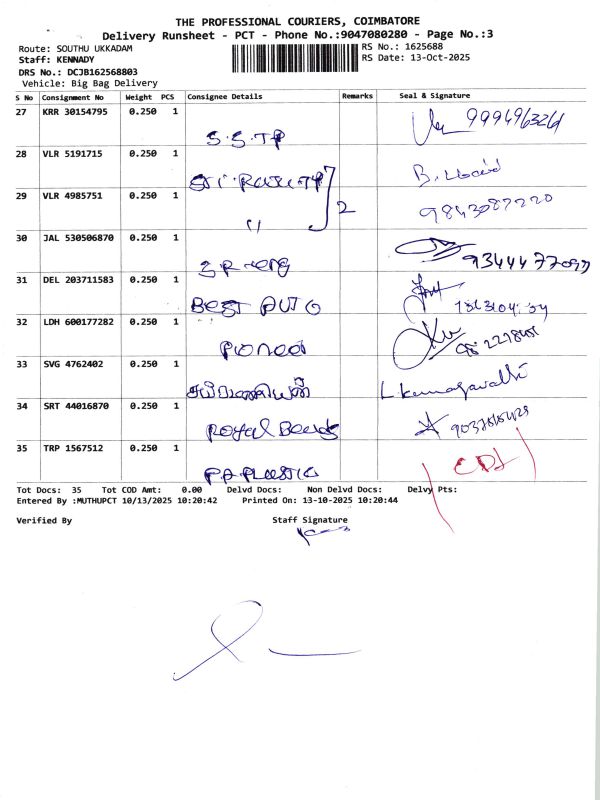 THE PROFESSIONAL COURIERS, COIMBATORE
Delivery Runsheet - PCT - Phone No.:9047080280 - Page No.:3
Route: SOUTHU UKKADAM
RS No.: 1625688
Staff: KENNADY
RS Date: 13-Oct-2025
DRS No.: DCJB162568803
Vehicle: Big Bag Delivery
S No Consignment No Weight PCS Consignee Details Remarks Seal & Signature
27 KRR 30154795 0.250 1
S.S.TP
28 VLR 5191715 0.250 1
29 VLR 4985751 0.250 1
" 2
9843087220
30 JAL 530506870 0.250 1
31 DEL 203711583 0.250 1
BEST AUTO
32 LDH 600177282 0.250 1
Pioneer
33 SVG 4762402 0.250 1
34 SRT 44016870 0.250 1
Royal Bends
35 TRP 1567512 0.250 1
P.A PLASTIC
Tot Docs: 35 Tot COD Amt: 0.00 Delvd Docs: Non Delvd Docs: Delvy Pts:
Entered By :MUTHUPCT 10/13/2025 10:20:42 Printed On: 13-10-2025 10:20:44
Verified By Staff Signature